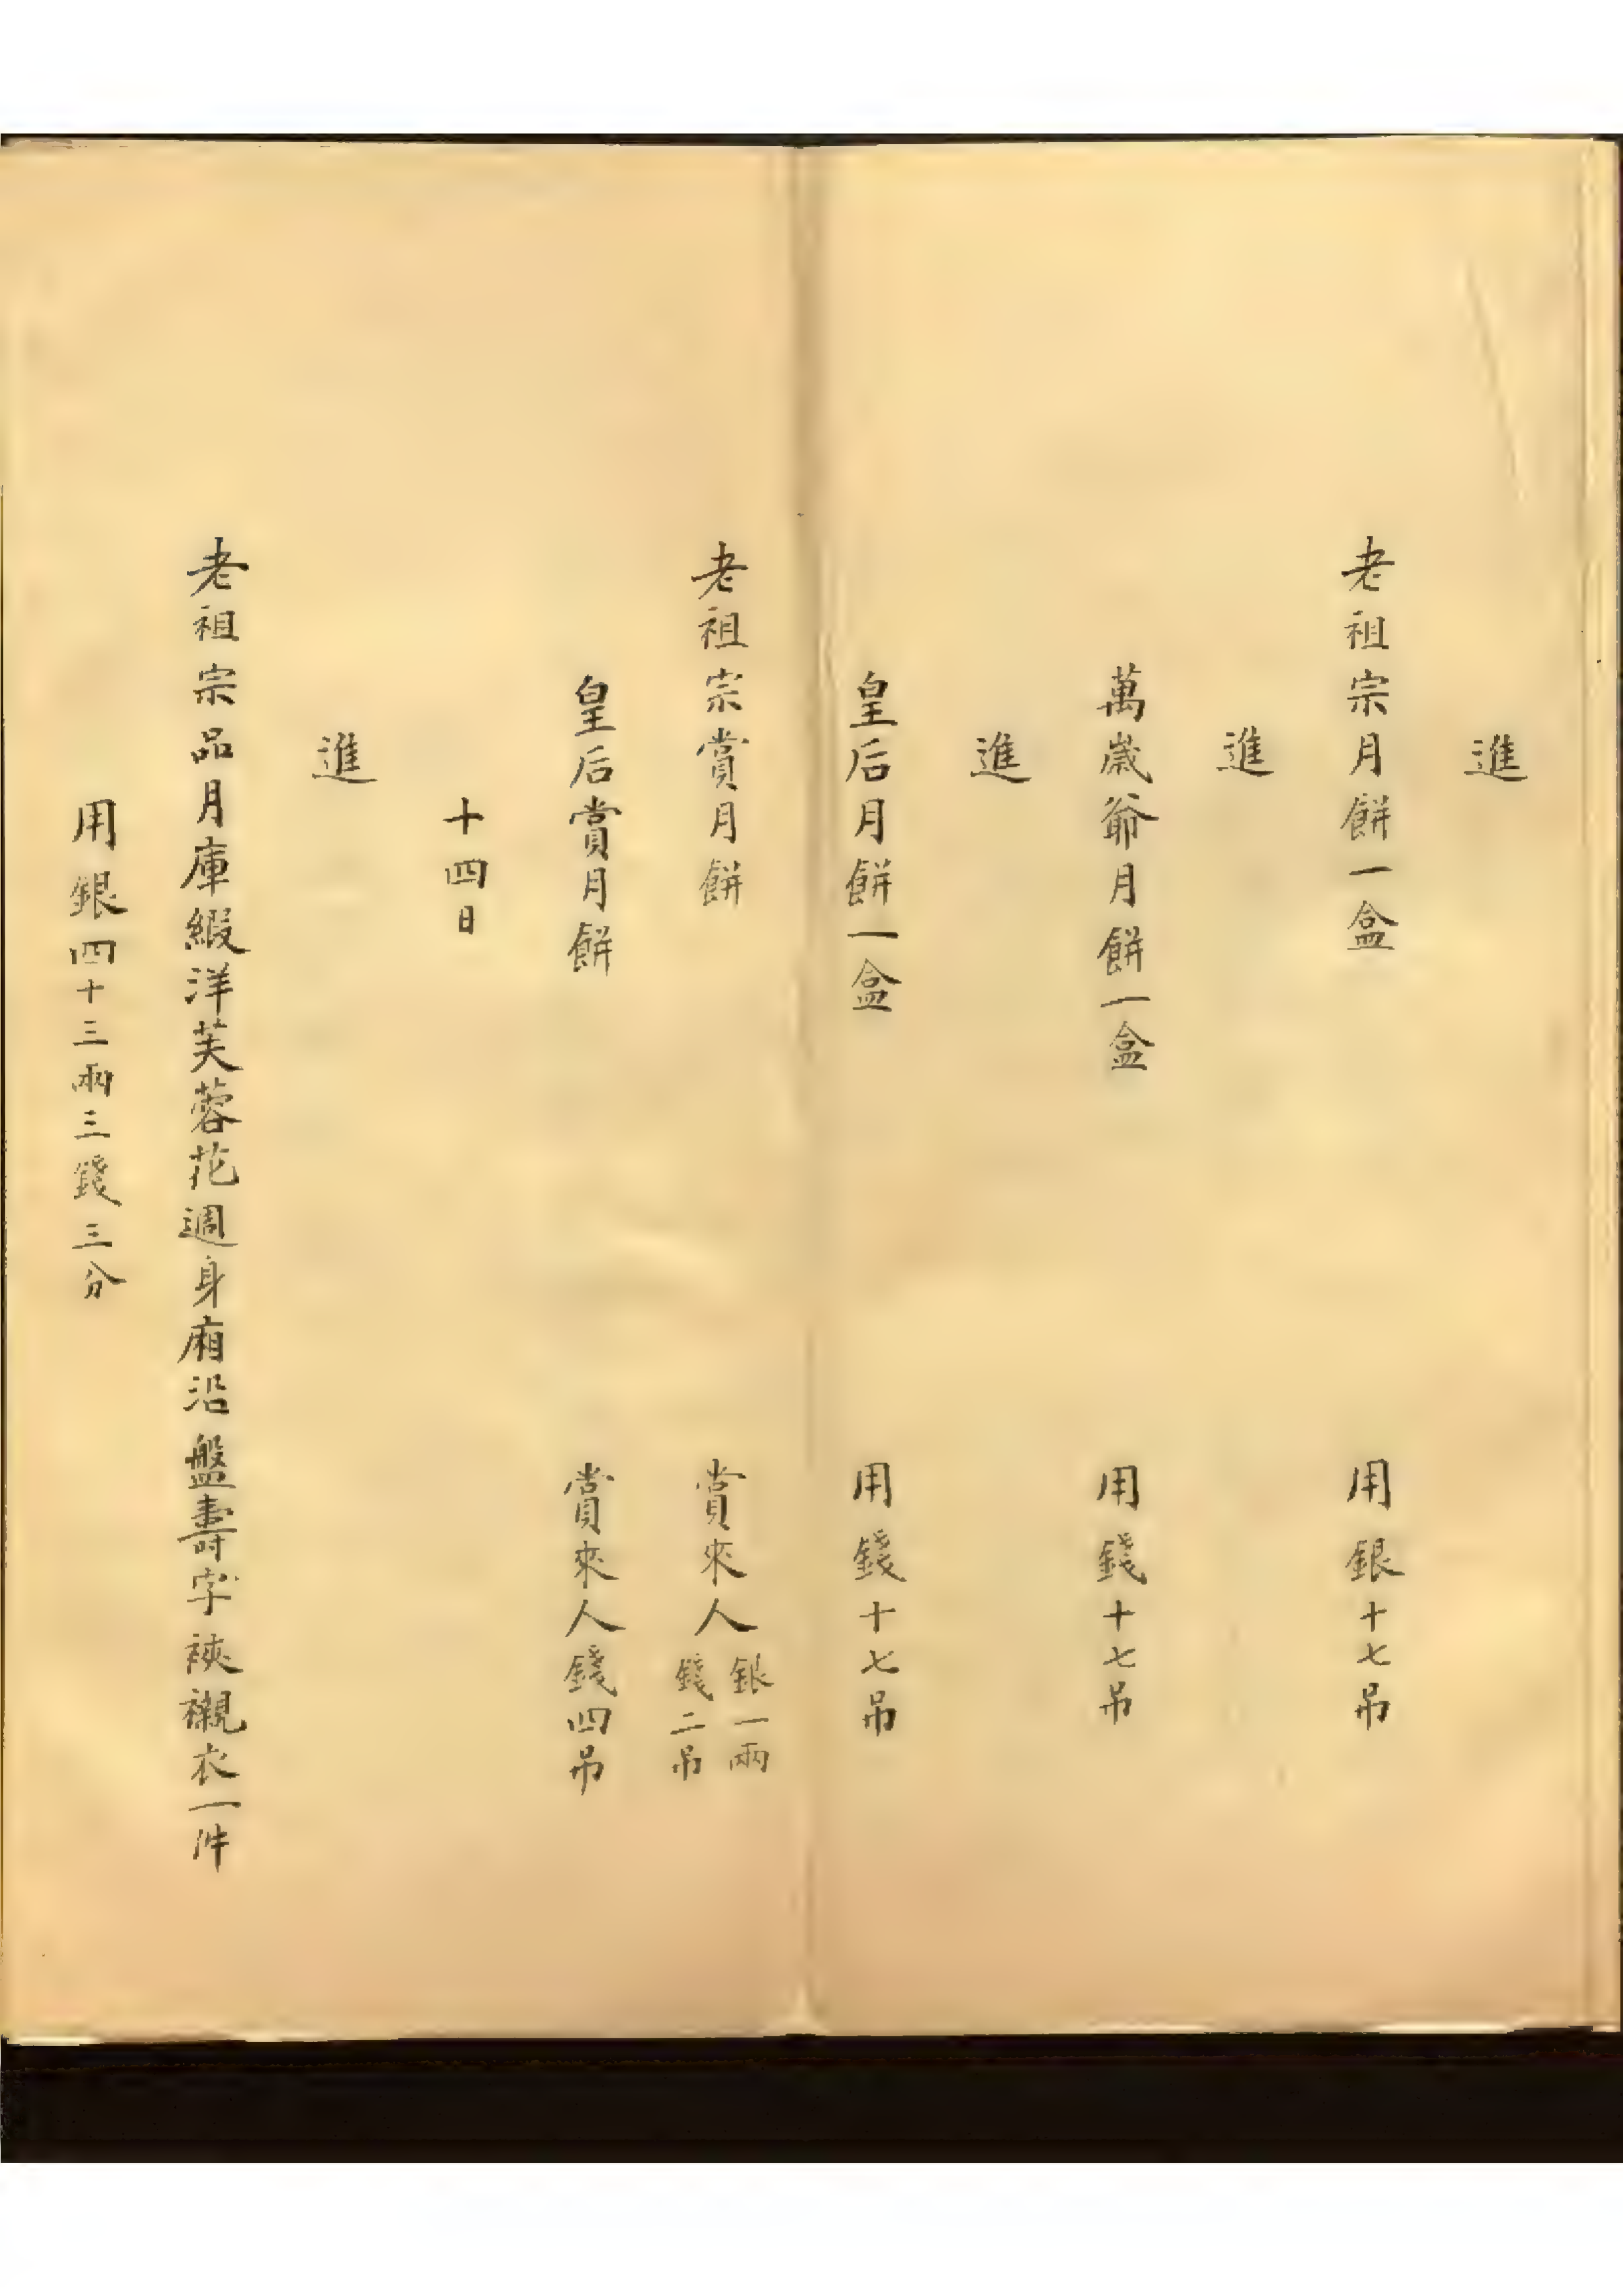 進
老祖宗月餅一盒 用銀十七吊
進
萬歲爺月餅一盒 用錢十七吊
進
皇后月餅一盒 用錢十七吊
老祖宗賞月餅 賞來人銀一兩錢二吊
皇后賞月餅 賞來人錢四吊
十四日
進
老祖宗品月庫緞洋芙蓉花週身廂沿盤壽字裌襯衣一件
用銀四十三兩三錢三分